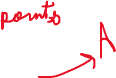 point-b
A